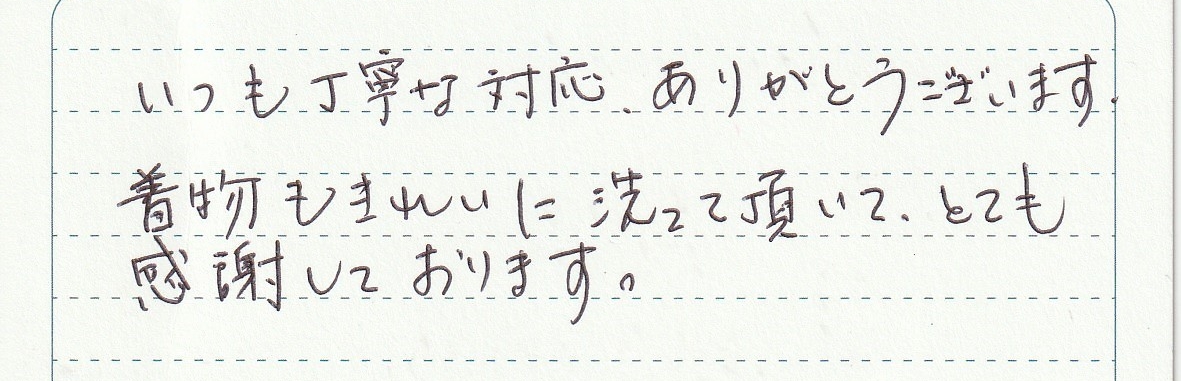 いつも丁寧な対応、ありがとうございます.
着物もきれいに洗って頂いて、とても
感謝しております。